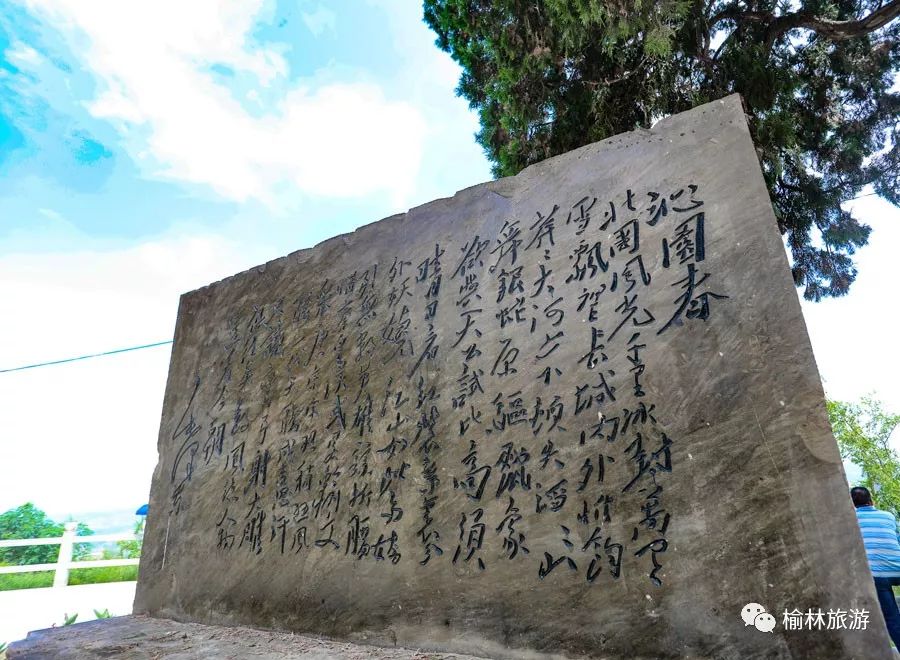 沁園春
北國風光千里冰封萬里
雪飄望長城内外惟餘
莽々大河上下頓失滔々山
舞銀蛇原驅蠟象
欲與天公試比高須
晴日看紅裝素裹分
外妖嬈江山如此多嬌
引無數英雄競折腰
惜秦皇漢武略輸文
采唐宗宋祖稍遜風
騷一代天驕成吉思汗
只識彎弓射大雕
俱往矣數風流人物
還看今朝
毛澤東
榆林旅游